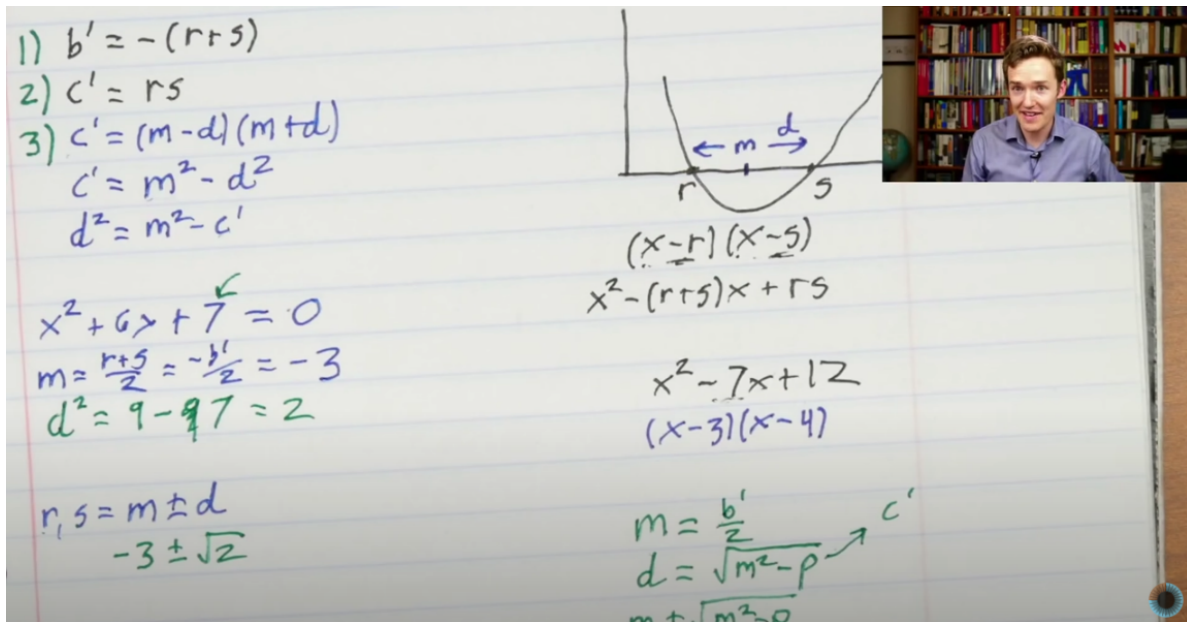 1) b' = -(r+s)
2) c' = rs
3) c' = (m-d)(m+d)
c' = m² - d²
d² = m² - c'
x² + 6x + 7 = 0
m = r+s/2 = -b'/2 = -3
d² = 9 - 7 = 2
r, s = m ± d
-3 ± √2
m d
r s
(x-r)(x-s)
x² - (r+s)x + rs
x² - 7x + 12
(x-3)(x-4)
m = b'/2
d = √m² - p → c'
m ± √m² - p
π